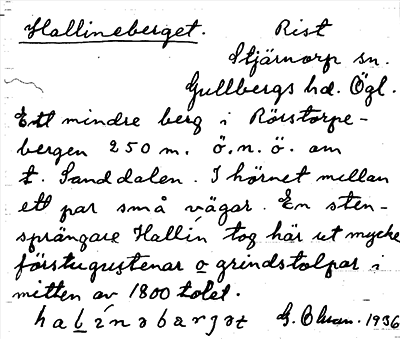 Hallineberget. Rist
Stjärnorp sn.
Gullbergs hd. Ögl.
Ett mindre berg i Rörstorpe-
bergen 250 m. ö.n.ö. om
t. Sanddalen. I hörnet mellan
ett par små vägar. En sten-
sprängare Hallin tog här ut mycke
förstugustenar o grindstolpar i
mitten av 1800 talet.
G. Olson. 1936